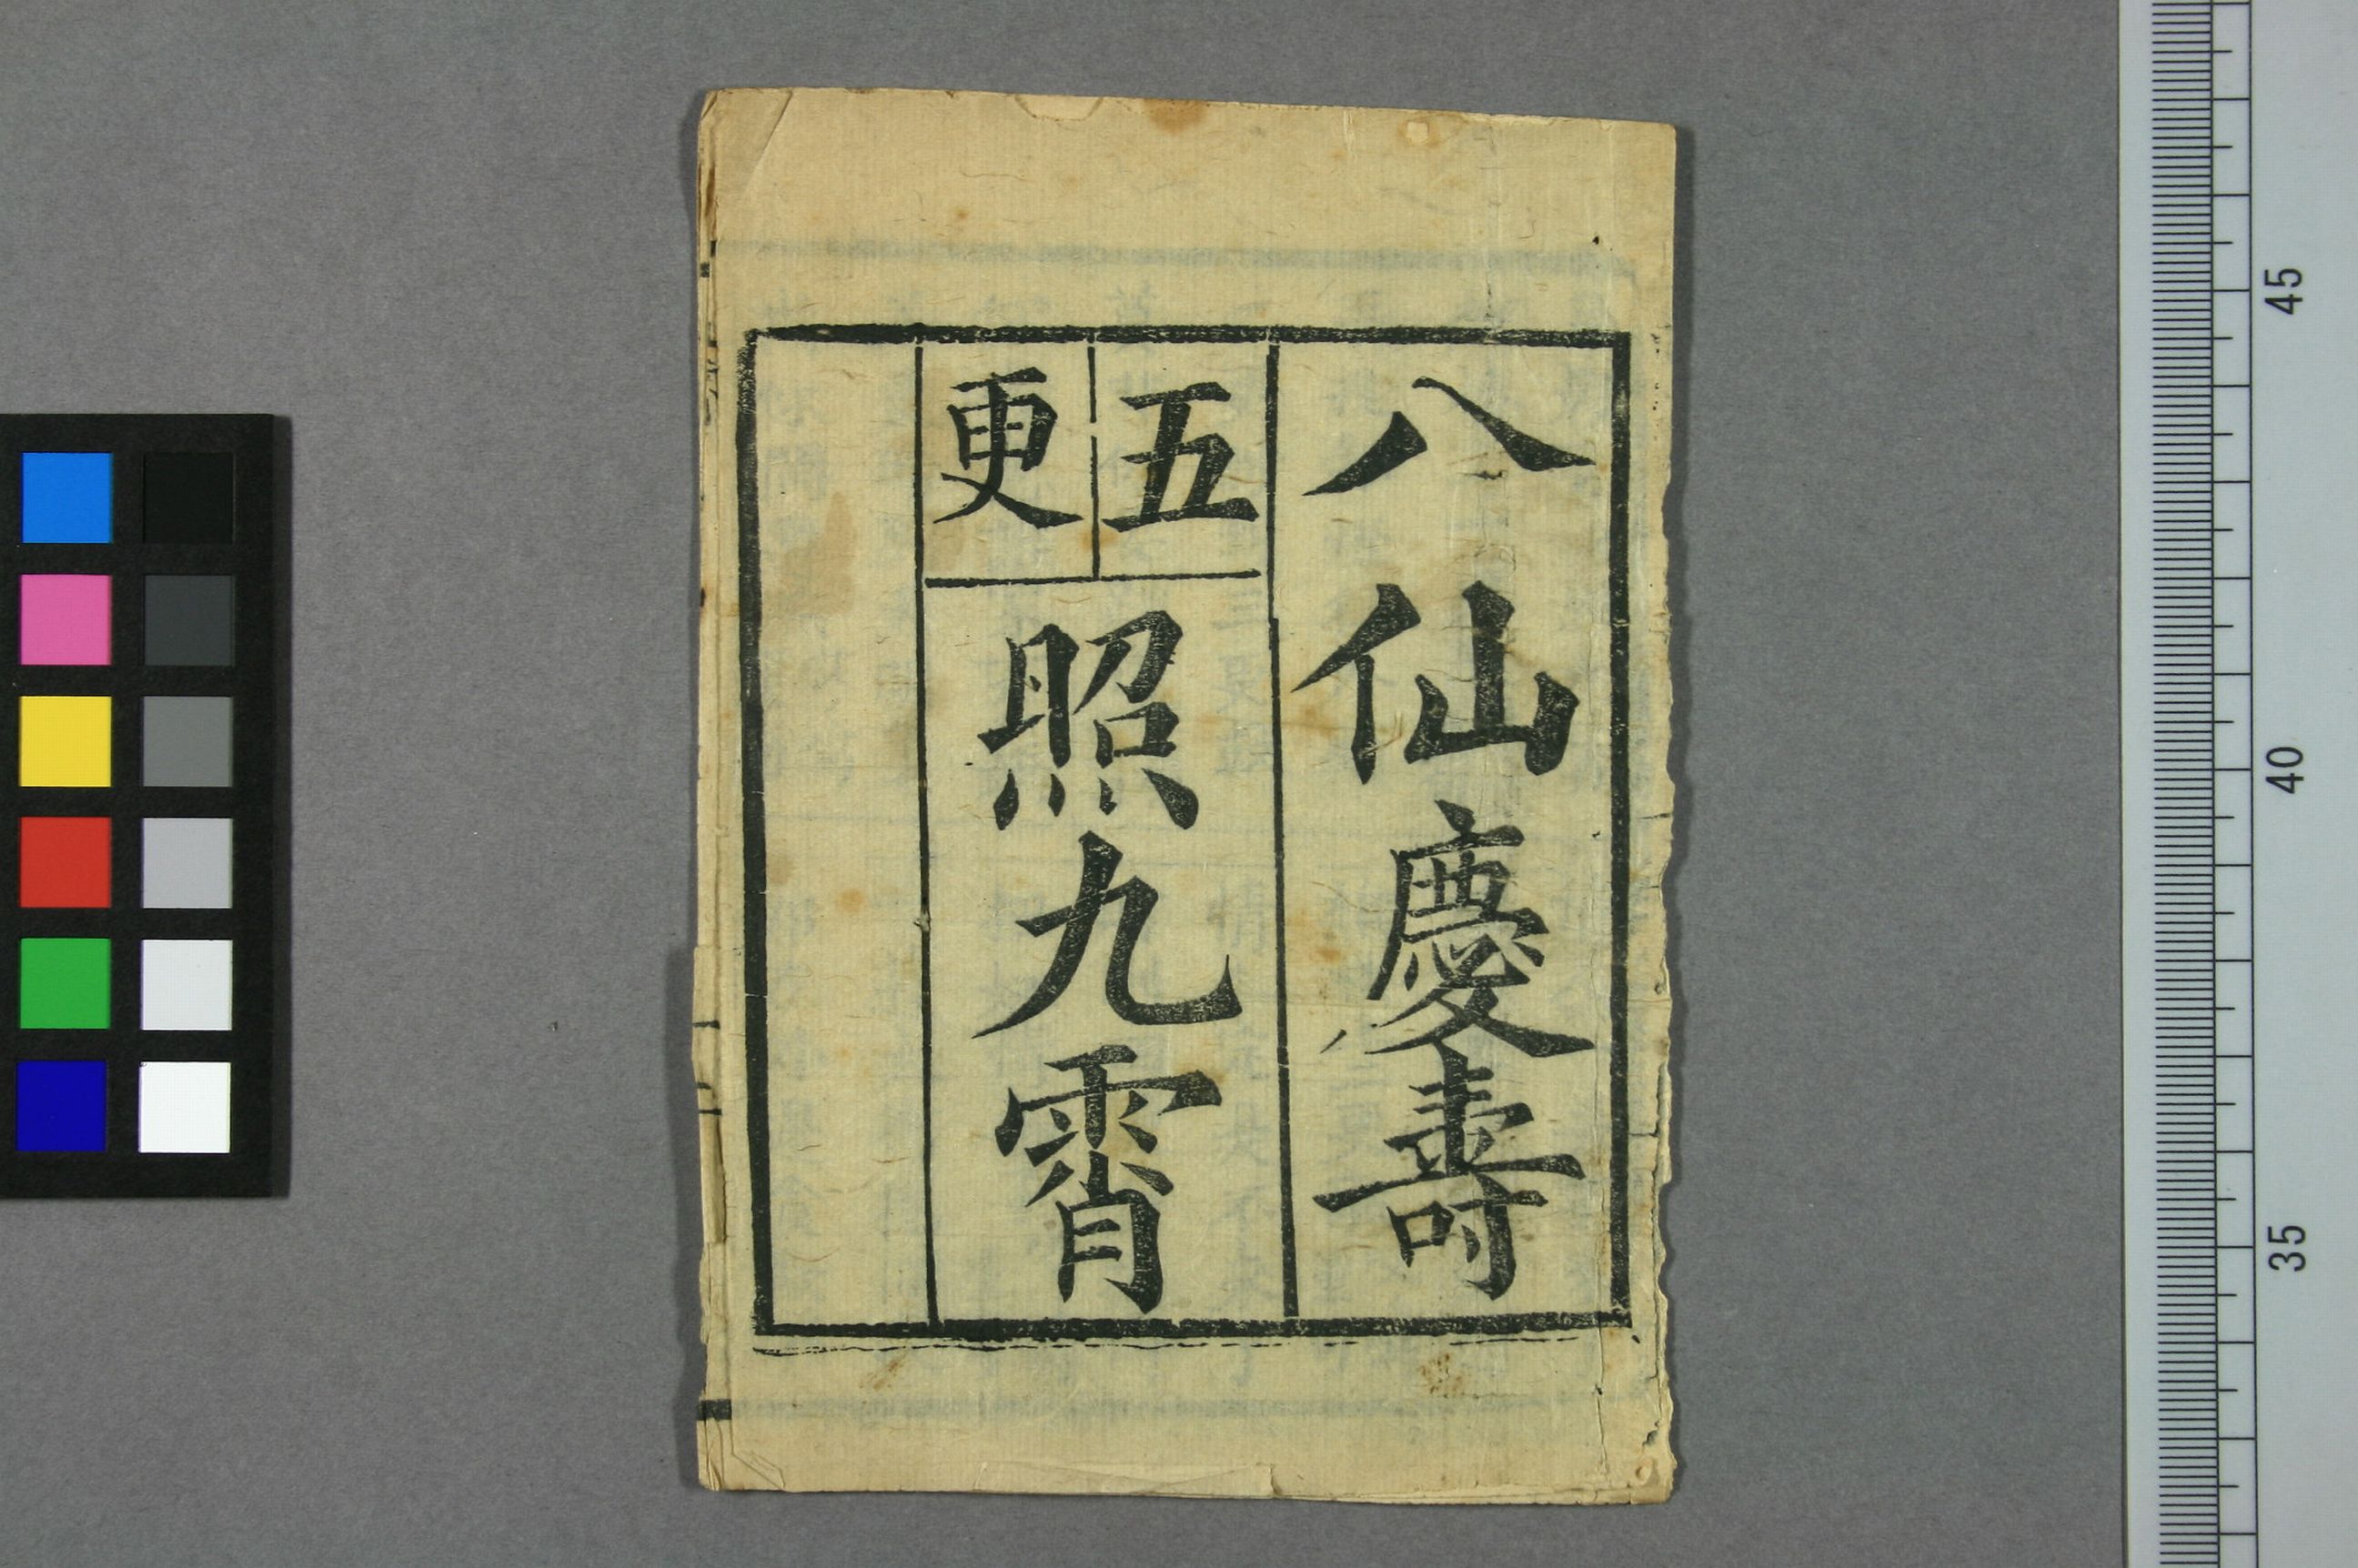 八仙慶壽
五更
照九霄
45
40
35